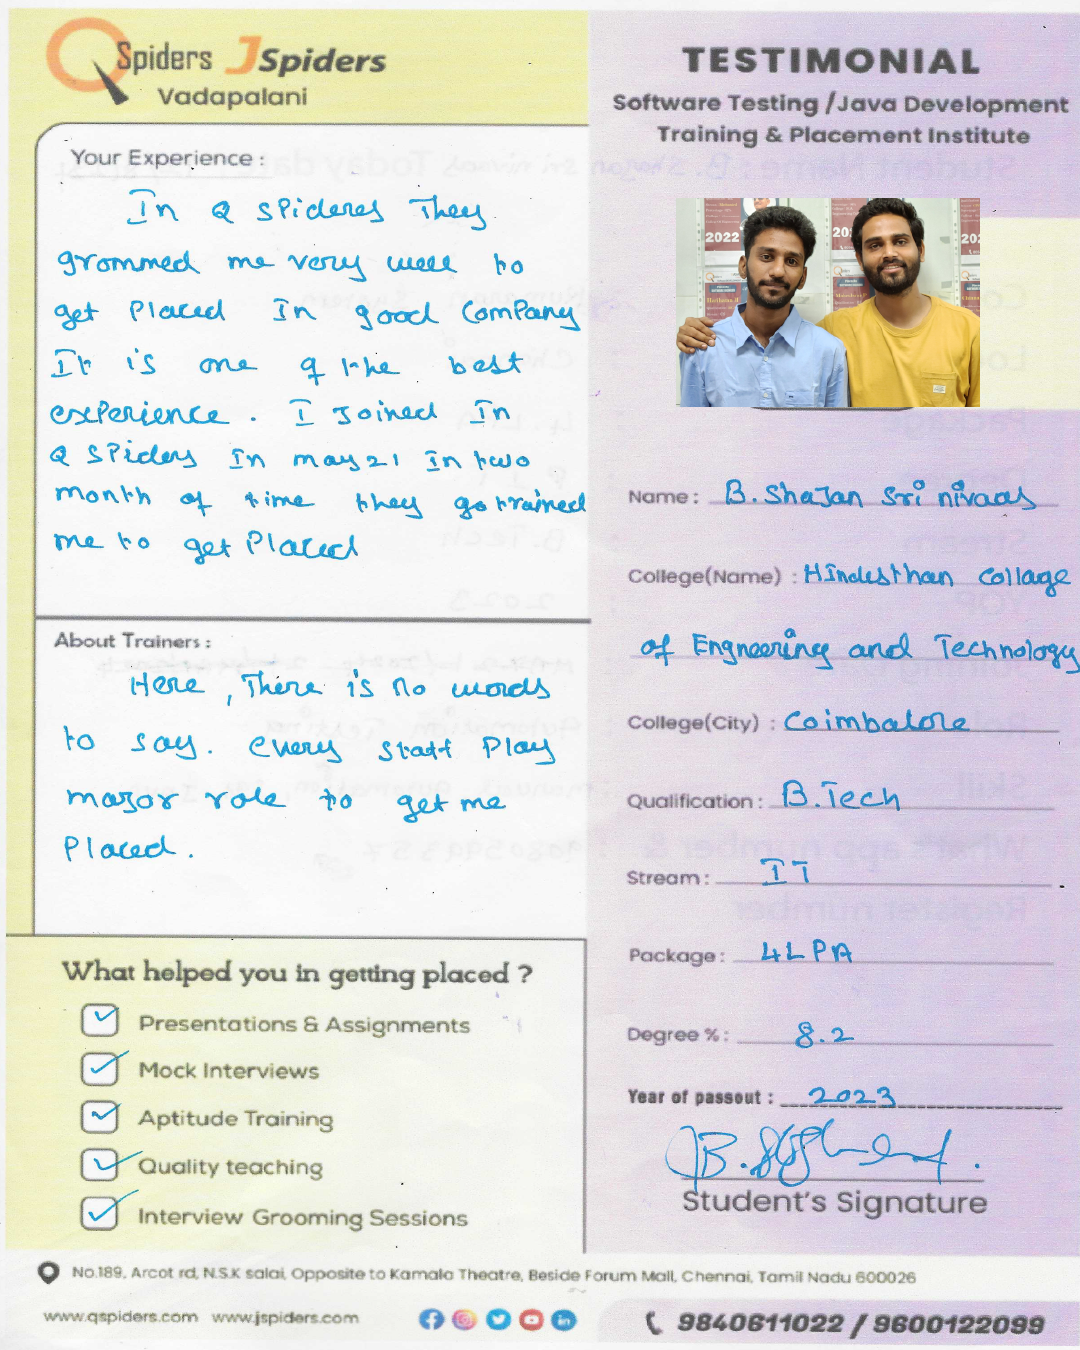 QSpiders JSpiders
Vadapalani
Your Experience :
In Q SPideres They
grommed me very well to
get Placed In good Company
It is one of the best
experience. I Joined In
Q SPiders In may 21 In two
month of time they go trained
me to get Placed
About Trainers :
Here, There is no words
to say. every staff Play
major role to get me
Placed.
What helped you in getting placed ?
Presentations & Assignments
Mock Interviews
Aptitude Training
Quality teaching
Interview Grooming Sessions
TESTIMONIAL
Software Testing /Java Development
Training & Placement Institute
2022
202
20
Name : B. ShaJan Sri nivaas
College(Name) : Hindusthan Collage
of Engneering and Technology
College(City) : Coimbatore
Qualification : B.Tech
Stream : IT
Package : 4LPA
Degree % : 8.2
Year of passout : 2023
Student's Signature
No.189, Arcot rd, N.S.K salai, Opposite to Kamala Theatre, Beside Forum Mall, Chennai, Tamil Nadu 600026
www.qspiders.com www.jspiders.com
9840611022 / 9600122099